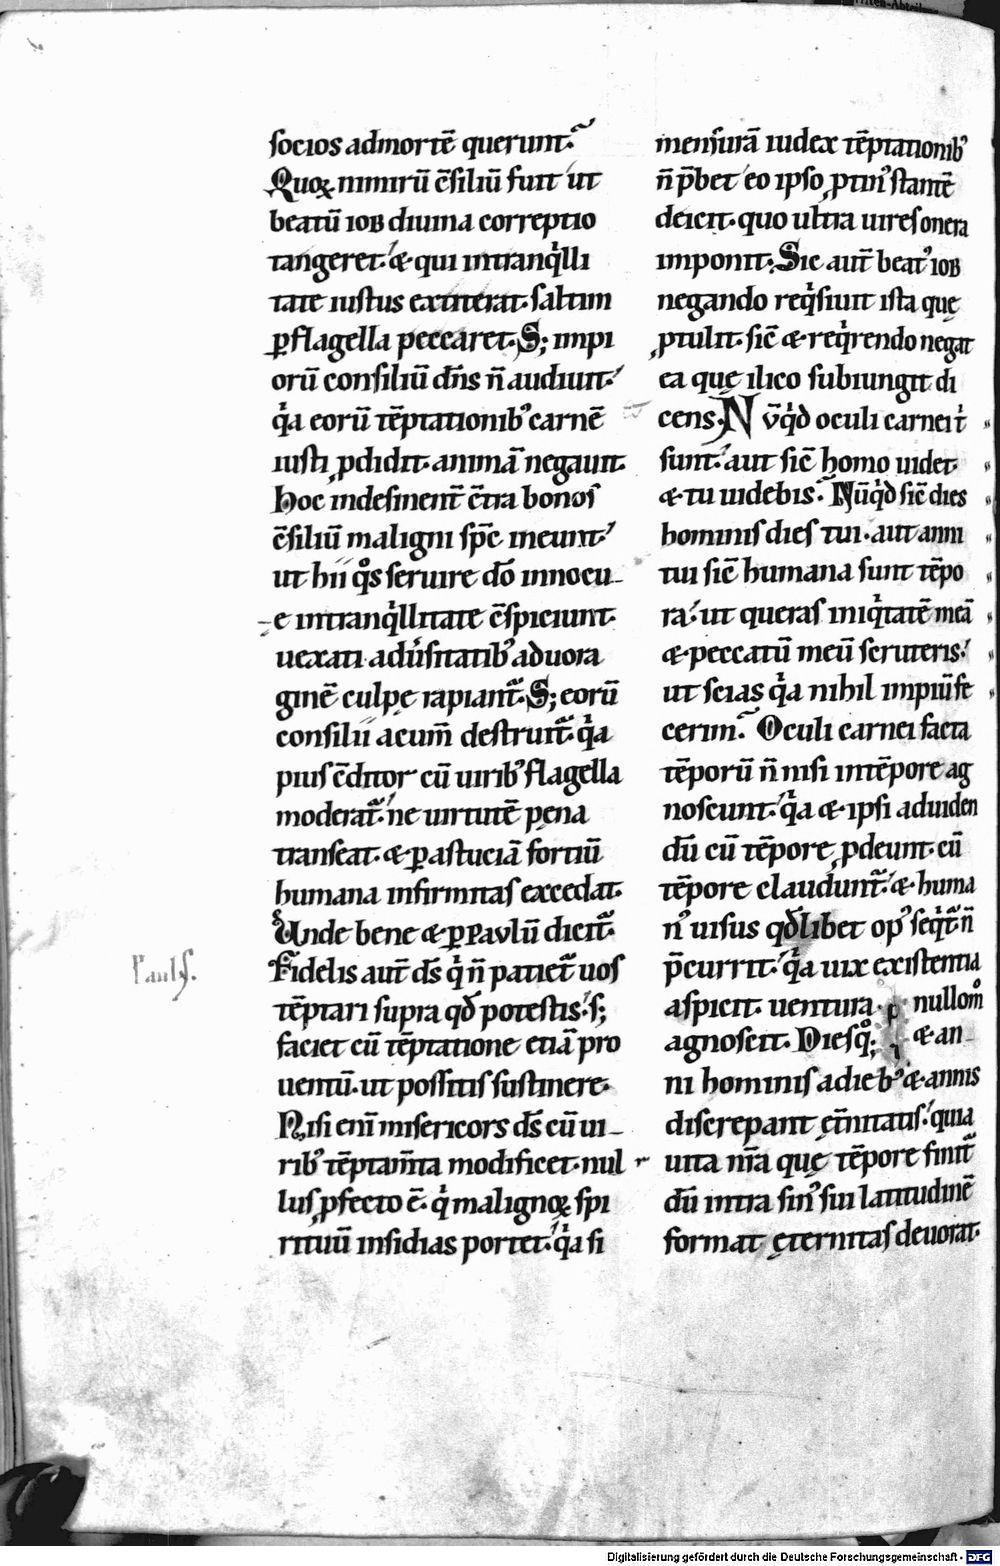 socios admortē querunt.
Quoꝝ nimirū c̄siliū fuit ut
beatū ioʙ diuina correptio
tangeret. & qui intranqͥlli
tate iustus extiterat. saltim
ꝑ flagella peccaret. S; impi
orū consiliū dn̄s n̄ audiuit.
qͥa eorū tēptationibꝰ carnē
iusti ꝓdidit. animā negauit.
Hoc indesinent̄ c̄tra bonos
c̄siliū maligni sp̄c ineunt.
ut hii qͦs seruire dō innocu-
e intranqͥllitate c̄spiciunt.
uexati aduͥsitatibꝰ aduora
ginē culpę rapiant᷑. S; eorū
consilii acum̄ destruit᷑. qͥa
pius c̄ditor cū uiribꝰ flagella
moderat᷑. ne uirtutē pęna
transeat. & ꝑ astuciā fortiū
humana infirmitas excedat.
Unde bene & ꝑ Paulū dicit᷑.
Fidelis aut̄ dš qͥ n̄ patiet᷑ uos
tēptari supra qđ potestis. s;
faciet cū tēptatione etiā pro
uentū. ut possitis sustinere.
Nisi enī misericors dš cū ui-
ribꝰ tēptam̄ta modificet. nul
lus ꝓfecto ē. qͥ malignoꝝ spi
rituū insidias portet. qͥa si
Paulꝰ.
mensurā iudex tēptationibꝰ
n̄ p̄bet eo ipso ꝓtinꝰ stantē
deicit. quo ultra uires onera
imponit. Sic aut̄ beatꝰ ioʙ
negando reqͥsiuit ista quę
ꝓtulit. sic̄ & reqͥrendo negat
ea quę ilico subiungit di
cens. Nūqͥd oculi carnei tͥ
sunt. aut sic̄ homo uidet.
& tu uidebis. Nūqͥd sic̄ dies
hominis dies tui. aut anni
tui sic̄ humana sunt tēpo
ra. ut queras iniqͥtatē meā
& peccatū meū scruteris.
ut scias qͥa nihil impiū fe
cerim. Oculi carnei facta
tēporū n̄ nisi intēpore ag
noscunt. qͥa & ipsi aduiden
dū cū tēpore ꝓdeunt. cū
tēpore claudunt᷑. & huma
nꝰ uisus qđlibet opꝰ seqͥt᷑. n̄
p̄currit. qͥa uix existentia
aspicit. uentura nullomͦ
agnoscit. Diesqͦꝫ & an-
ni hominis adiebꝰ & annis
discrepant ęt̄nitatis. quia
uita nr̄a quę tēpore finit᷑
dū intra sinꝰ sui latitudinē
format ęternitas deuorat.
Digitalisierung gefördert durch die Deutsche Forschungsgemeinschaft - DFG